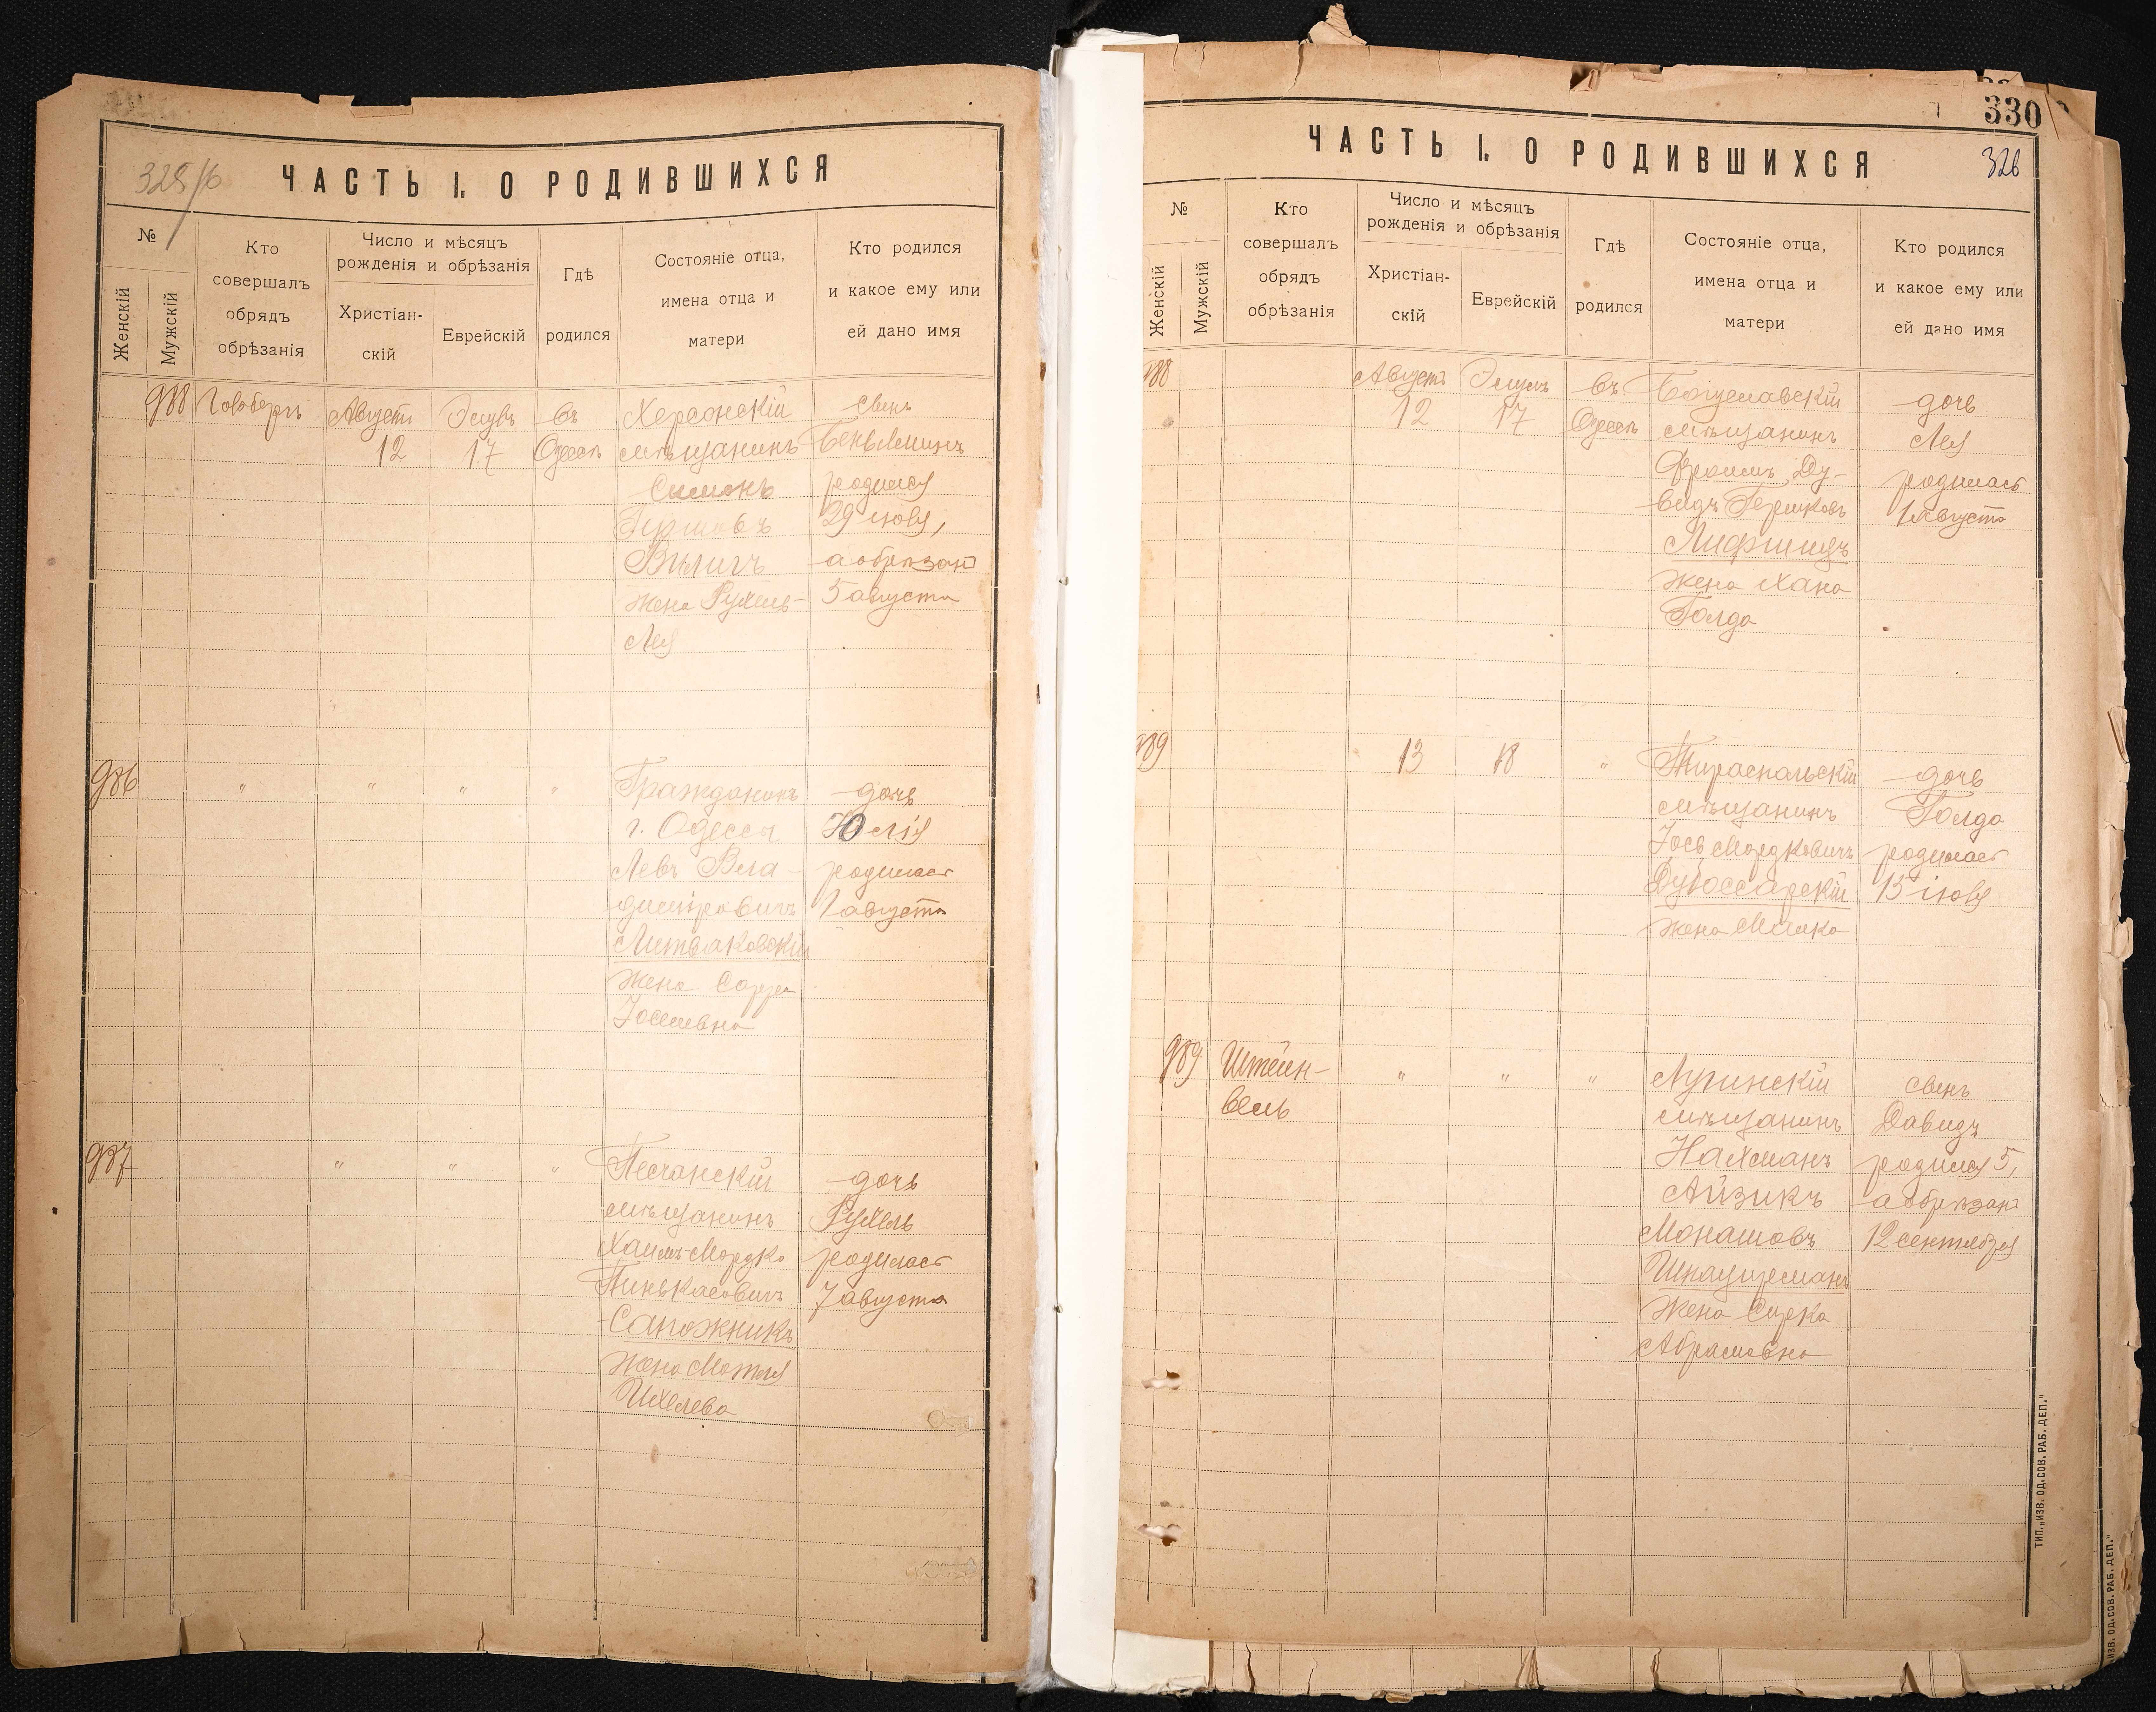 325/б
ЧАСТЬ I. О РОДИВШИХСЯ
№
Женскій
Мужскій
Кто
совершалъ
обрядъ
обрѣзанія
Число и мѣсяцъ
рожденія и обрѣзанія
Христіан-
скій
Еврейскій
Гдѣ
родился
Состояніе отца,
имена отца и
матери
Кто родился
и какое ему или
ей дано имя
988
Августъ
12
Элулъ
17
въ
Одессѣ
Херсонскій
мѣщанинъ
Симонъ
Гершовъ
жена Рухль-
Лея
сынъ
Беньминъ
родился
29 іюля,
а обрѣзанъ
5 августа
986
"
"
"
"
Гражданинъ
г. Одессы
Левъ Вла-
диміровичъ
Литваковскій
жена Сарра
Іосиевна
дочь
Юлія
родилась
1 августа
987
"
"
"
Песчанскій
мѣщанинъ
Хаимъ-Мордко
Пинькасовичъ
Сапожникъ
жена Мотля
Ихелева
дочь
Рухль
родилась
7 августа
330
326
ЧАСТЬ I. О РОДИВШИХСЯ
№
Женскій
Мужскій
Кто
совершалъ
обрядъ
обрѣзанія
Число и мѣсяцъ
рожденія и обрѣзанія
Христіан-
скій
Еврейскій
Гдѣ
родился
Состояніе отца,
имена отца и
матери
Кто родился
и какое ему или
ей дано имя
988
Августъ
12
Элулъ
17
въ
Одессѣ
Богуславскій
мѣщанинъ
Фроимъ Ду-
видъ Гершковъ
Лифшицъ
жена Хана
Голда
дочь
Лея
родилась
1 Августа
989
13
18
"
Тираспольскій
мѣщанинъ
Іось Мордковичъ
Дубоссарскій
жена Малка
дочь
Голда
родилась
15 іюля
989
Штейн-
вель
"
"
"
Лугинскій
мѣщанинъ
Нахманъ
Айзикъ
Монашовъ
Шнайдерманъ
жена Сурка
Абрамовна
сынъ
Давидъ
родился 5,
а обрѣзанъ
12 сентября
ТИП. „ИЗВ. ОД. СОВ. РАБ. ДЕП."
ИЗВ. ОД. СОВ. РАБ. ДЕП."